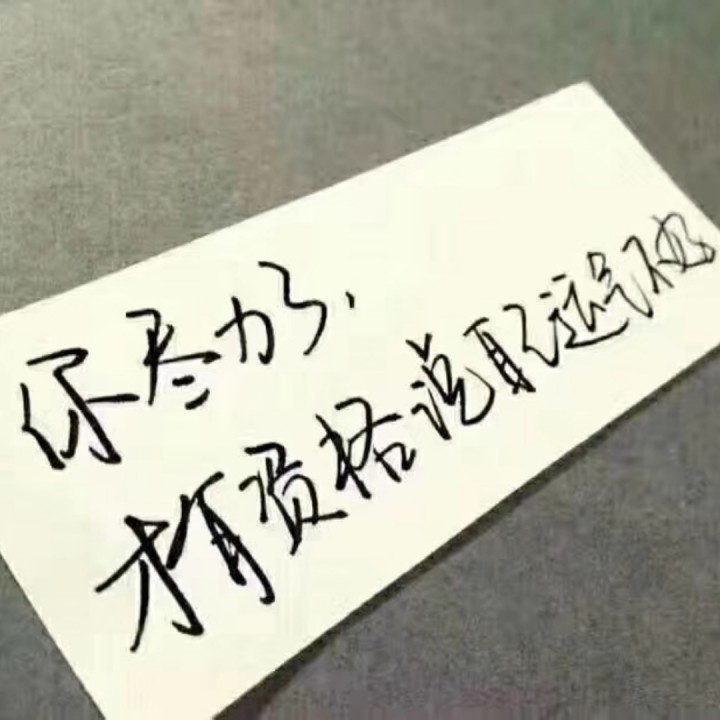 你尽力了.
才有资格说自己运气不好